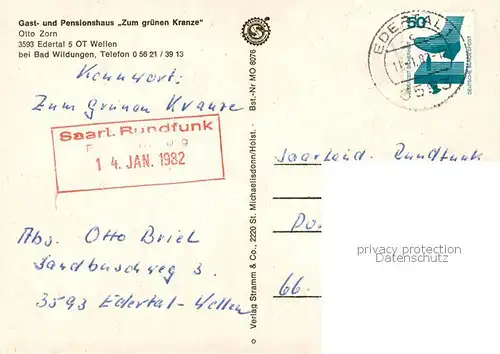 Gast- und Pensionshaus „Zum grünen Kranze"
Otto Zorn
3593 Edertal 5 OT Wellen
bei Bad Wildungen, Telefon 0 56 21 / 39 13
Kennwort:
Zum Grünen Kranze
Saarl. Rundfunk
1 4. JAN. 1982
Abs. Otto Briel
Sandbuschweg 3
3593 Edertal-Wellen
Best.-Nr. MO 8076
Verlag Stramm & Co., 2220 St. Michaelisdonn/Holst.
EDERTAL 1
c
50
DEUTSCHE BUNDESPOST
Saarland. Rundfunk
Po
66
privacy protection
www.ansichtskartenversand.com